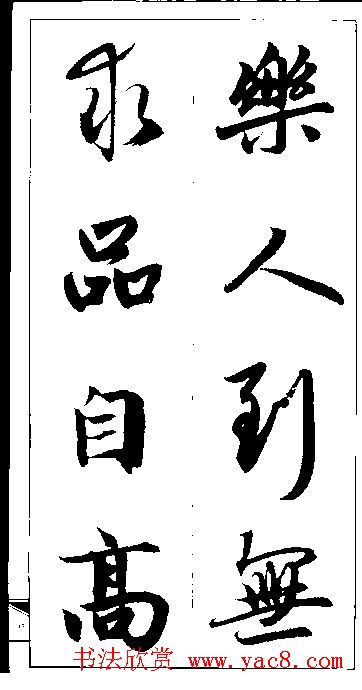 樂人到無
求品自高
书法欣赏 www.yac8.com